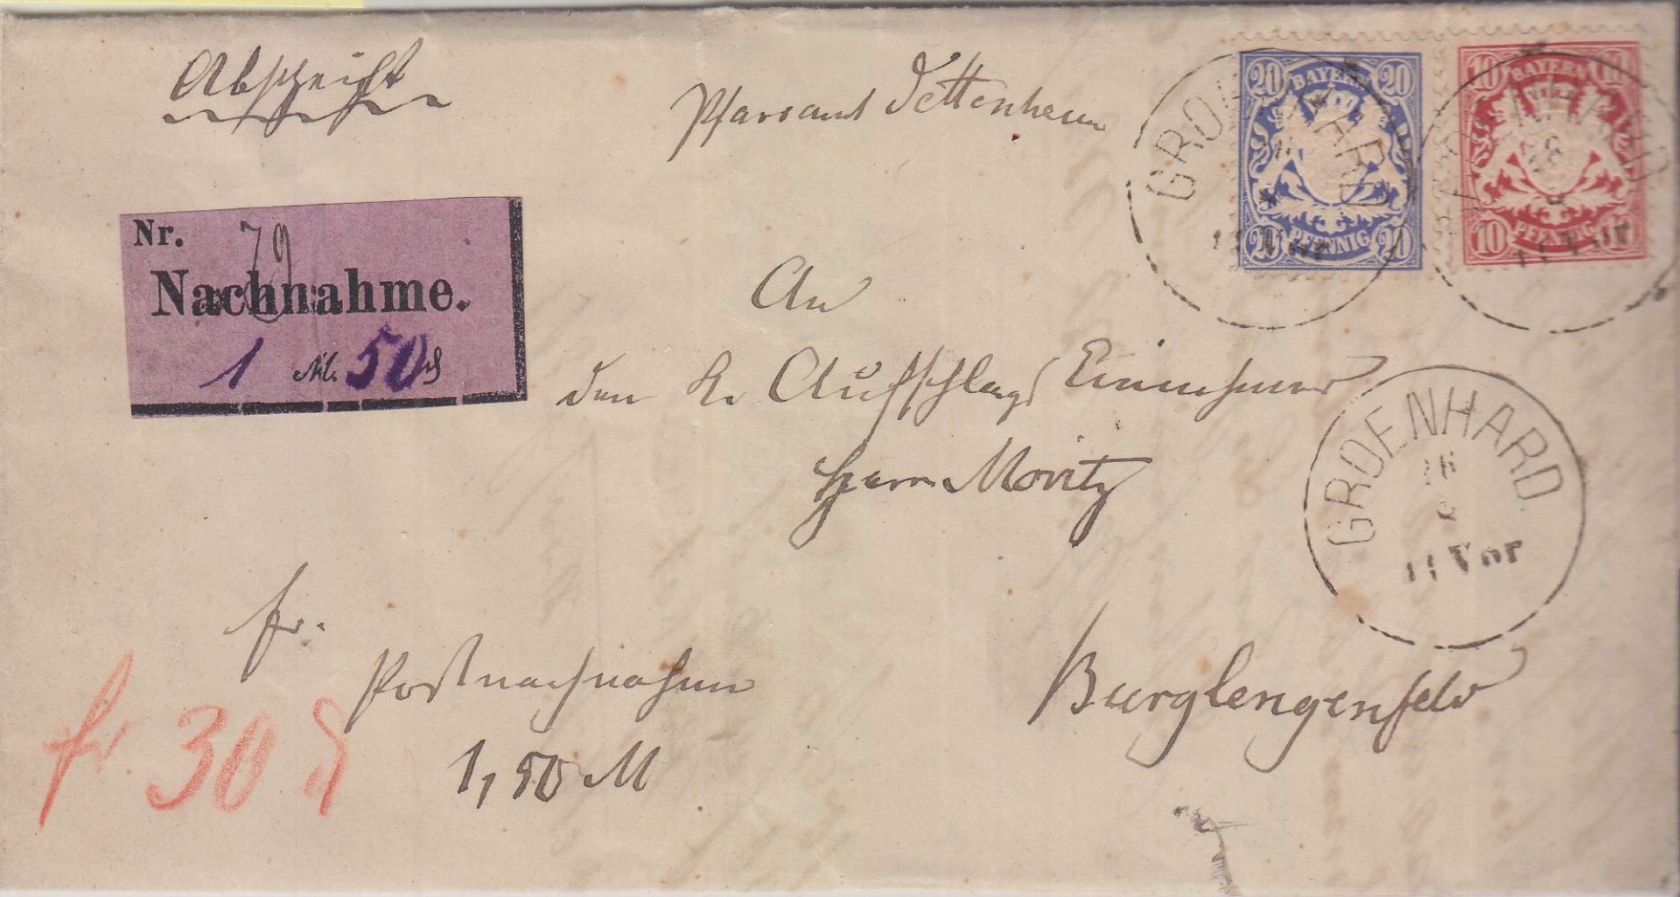 Abschrift
Pfarramt Dettenheim
20 BAYERN 20
20 PFENNIG 20
10 BAYERN 10
10 PFENNIG
GROENHARD
11 Vor
GROENHARD
11 Vor
Nr. 79
Nachnahme.
1 M. 50 ₰
An
den k. Aufschlags Einnehmer
Herrn Moritz
GROENHARD
11 Vor
fr.
Postnachnahme
1,50 M
Burglengenfeld
fr 30 ₰